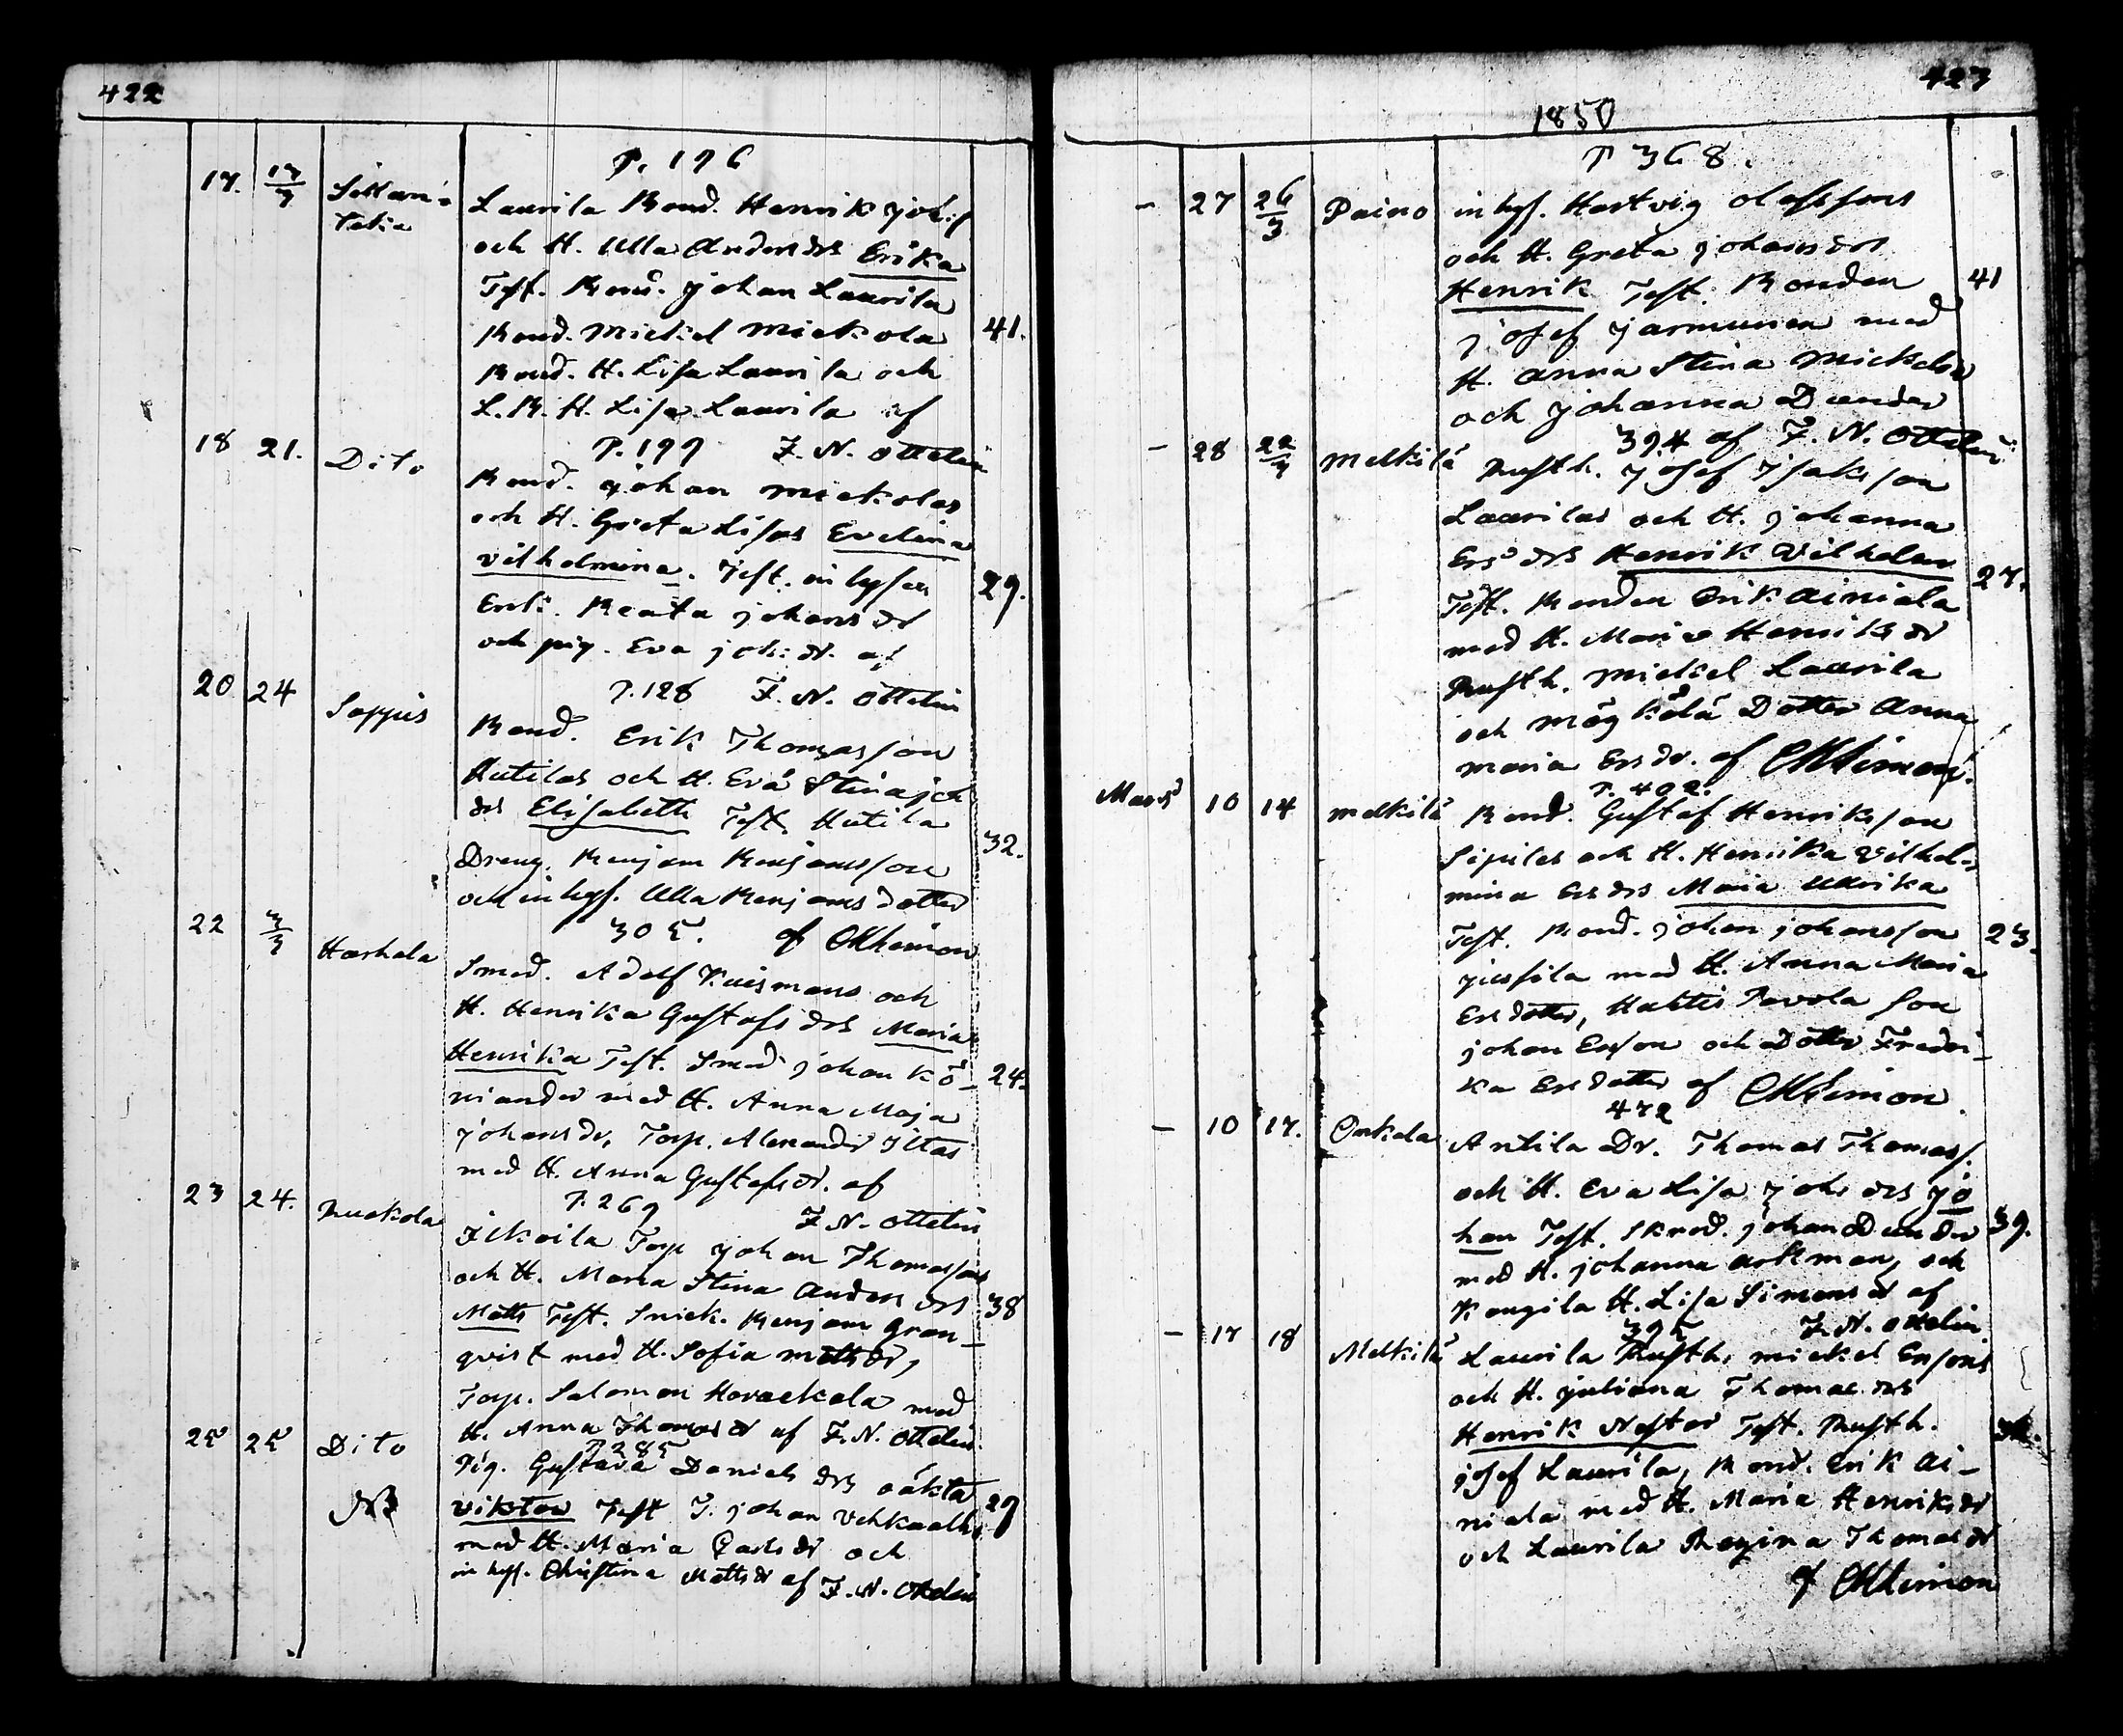 422
P. 196
17. 17/3 Laurila Bond. Henrik Joh:s
och H. Ulla Anders drs Erika
Test. Bond. Johan Laurila
Bond. Mickel Mickola 41.
Bond. H. Lisa Laurila och
L. B. H. Lisa Laurila af
P. 199 F. N. Ottelin
18 21. Dito Bond. Johan Mickolas
och H. Greta Lisas Evelina
Vilhelmina. Test. inhysen 29.
Erik. Beata Johans dr
och pig. Eva Joh: dr. af
P. 128 F. N. Ottelin
20 24 Soppis Bond. Erik Thomasson
Hutilas och H. Eva Stina Joh
drs Elisabeth Test. Hutila
Dreng. Benjam Benjamsson 32.
och inhys. Ulla Benjams dotter
305. af
22 3/3 Harhala Smed. Adolf Kuismans och
H. Henrika Gustafs drs Maria
Henrika Test. Smed Johan Kö- 24.
niander med H. Anna Maja
Johans dr, Torp. Alexander Iltas
med H. Anna Gustafs dr. af
P. 269 F. N. Ottelin
23 24. Torp Johan Thomassons
och H. Maria Stina Anders drs
Matts Test. Snick. Benjam Gran- 38
qvist med H. Sofia Matts dr,
Torp. Salomon med
H. Anna Thomas dr af F. N. Ottelin
P 285
25 25 Dito Pig. Gustava Daniels drs oäkta
NB Viktor Test J. Johan 29
med H. Maria dr och
inhys. Christina Matts dr af F. N. Ottelin
423
1850
P 368.
- 27 26/3 Paino inhys. Hartvig Olofssons
och H. Greta Johans drs
Henrik Test. Bonden 41
Josef Jarmunen med
H. Anna Stina Mickelsdr
och Johanna Dunder
394 af F. N. Ottelin
- 28 22/3 Melkilä Rusth. Josef Isaksson
Laurilas och H. Johanna
Ers drs Henrik Vilhelm 27.
Test. Bonden Erik Ainiala
med H. Maria Henriks dr
Rusth. Mickel Laurila
och Dotter Anna
Maria Ers dr. af
P. 402.
Mars 10 14 Melkilä Bond. Gustaf Henriksson
Sipilas och H. Henrika Vilhel-
mina Ers drs Maria Ulrika
Test. Bond. Johan Johansson 23.
Jussila med H. Anna Maria
Ers dotter, Pavola Son
Johan Erson och Dotter Fredri-
ka Ers dotter af
472
- 10 17. Onkela Antila Dr. Thomas Thomass.
och H. Eva Lisa Joh: drs Jo
han Test. Skred. Johan Dunder 39.
med H. Johanna Arkman, och
Kongila H. Lisa Simons dr af
395 F. N. Ottelin.
- 17 18 Melkilä Laurila Rusth. Mickel Ersons
och H. Juliana Thomas drs
Henrik Nestor Test. Rusth.
Josef Laurila, Bond. Erik Ai-
niala med H. Maria Henriks dr
och Laurila Regina Thomas dr
af